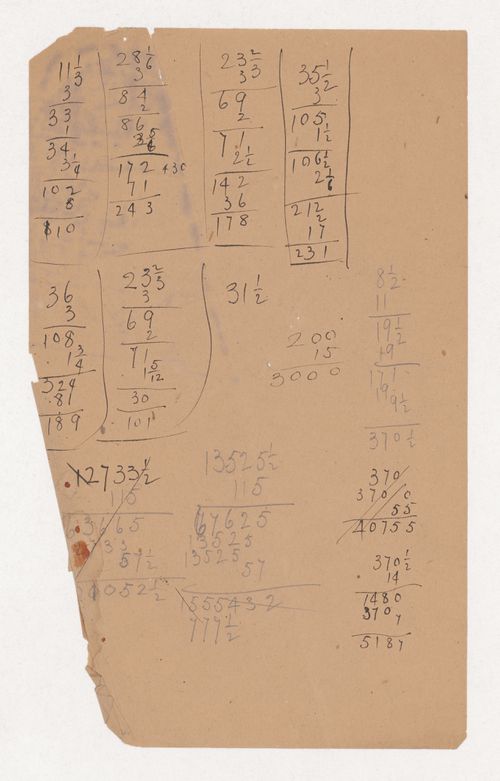 11 1/3
3
33
1
34
3 1/4
102
8
110
28 1/6
3
84
2
86
172 430
71
243
23 2/3
3
69
2
71
2 1/2
142
36
178
35 1/2
3
105
1 1/2
106 1/2
2 1/6
212
17
231
36
3
108
1 3/4
324
81
189
23 2/3
3
69
2
71
1 5/12
30
101
31 1/2
200
15
3000
8 1/2
11
19 1/2
19
171
19
9 1/2
370 1/2
12733 1/2
115
63665
57 1/2
4052 1/2
13525 1/2
115
67625
13525
13525
57
1555432
777 1/2
370
370 0
55
40755
370 1/2
14
1480
370 7
5187